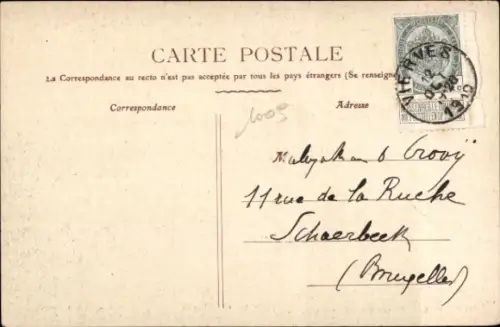 CARTE POSTALE
La Correspondance au recto n'est pas acceptée par tous les pays étrangers (Se renseigne
Correspondance
Adresse
1009
VIERVES
12
1910
11 rue de la Ruche
Schaerbeek
(Bruxelles)